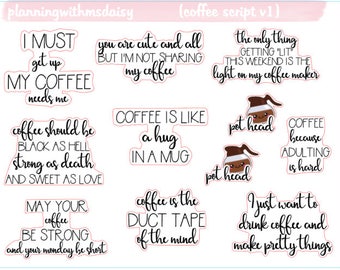 planningwithmsdaisy {coffee script v1}
I MUST
get up
MY COFFEE
needs me
you are cute and all
BUT I'M NOT SHARING
my coffee
the only thing
GETTING "LIT"
THIS WEEKEND IS THE
light on my coffee maker
coffee should be
BLACK AS HELL
strong as death
AND SWEET AS LOVE
COFFEE IS LIKE
a hug
IN A MUG
pot head
pot head
COFFEE
because
ADULTING
is hard
MAY YOUR
coffee
BE STRONG
and your monday be short
coffee is the
DUCT TAPE
of the mind
I just want to
drink coffee and
make pretty things